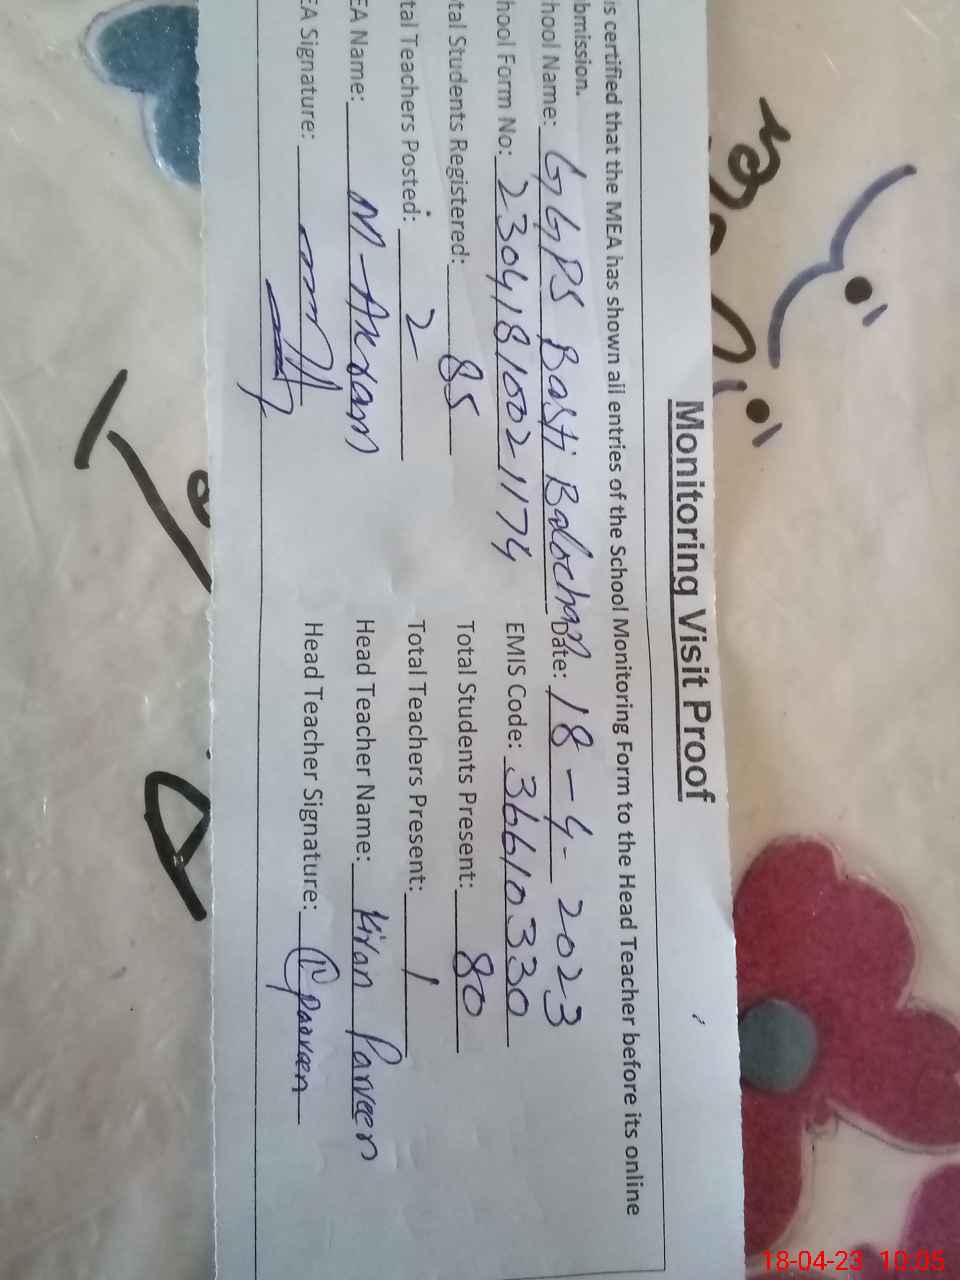 Monitoring Visit Proof
is certified that the MEA has shown all entries of the School Monitoring Form to the Head Teacher before its online
bmission.
hool Name: GGPS Basti Balochan Date: 18-4-2023
hool Form No: 23041810021174 EMIS Code: 36610330
tal Students Registered: 85 Total Students Present: 80
tal Teachers Posted: 2 Total Teachers Present: 1
EA Name: M-Akram Head Teacher Name: Kiran Parveen
EA Signature: Head Teacher Signature: Parveen
18-04-23 10:05